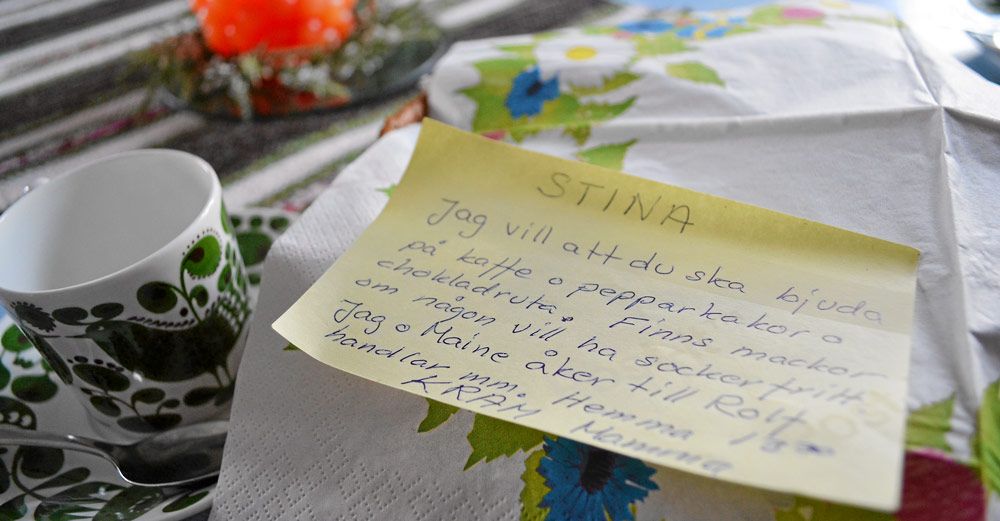 STINA
Jag vill att du ska bjuda
på kaffe o pepparkakor o
chokladruta. Finns mackor
om någon vill ha sockerfritt.
Jag o Maine åker till Rolf
handlar mm. Hemma
KRAM Mamma